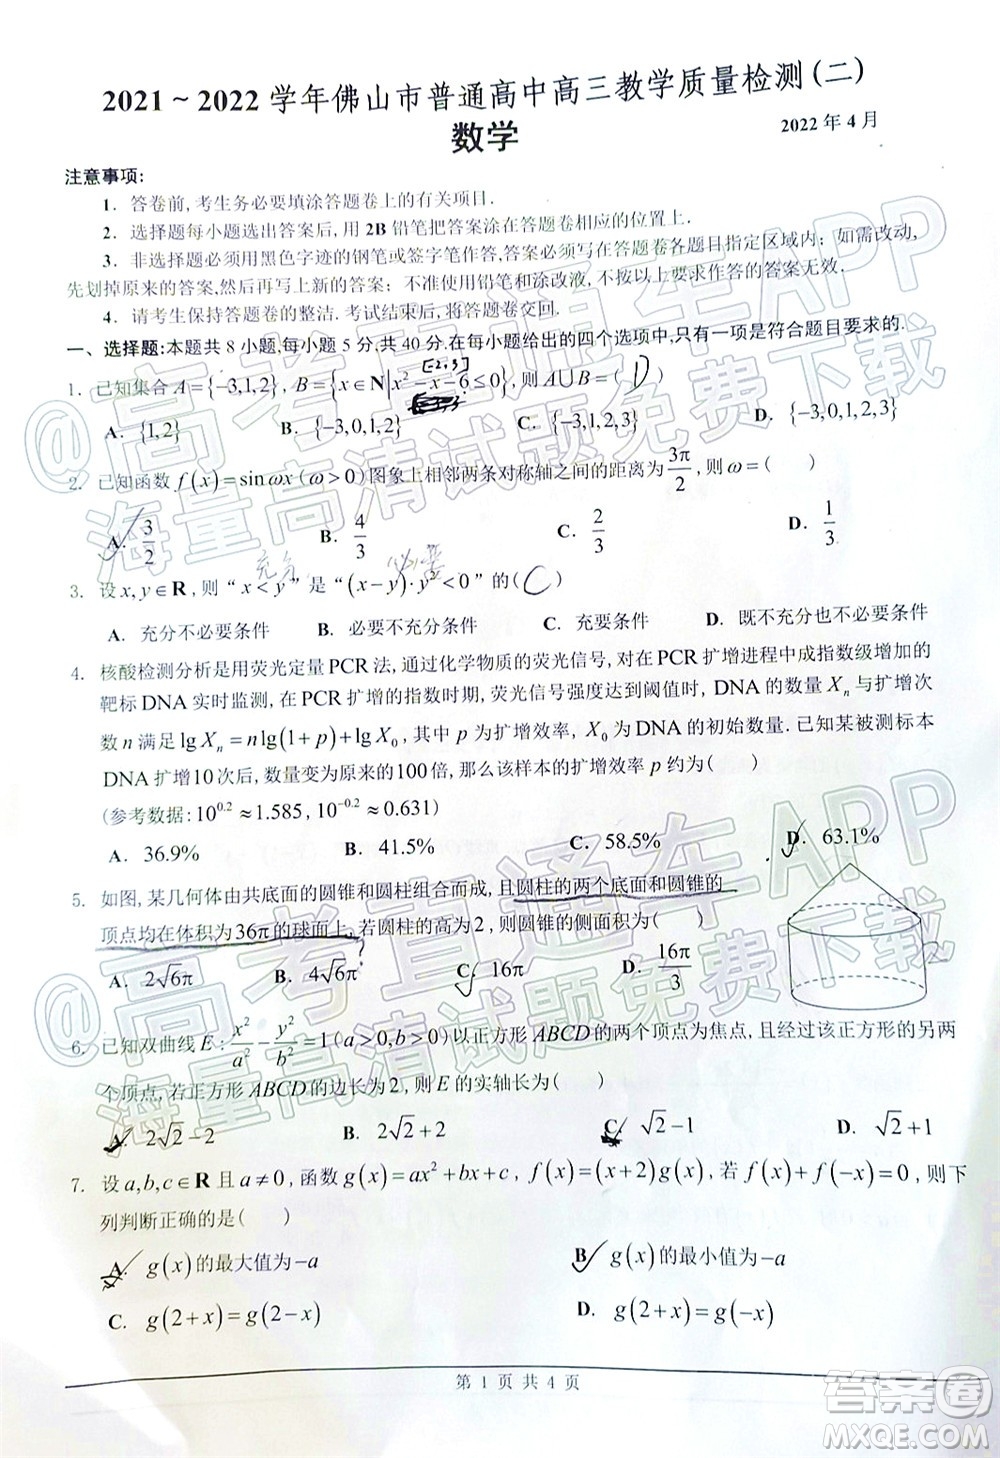 2021～2022 学年佛山市普通高中高三教学质量检测(二)
数学
2022 年 4 月
注意事项:
1. 答卷前, 考生务必要填涂答题卷上的有关项目.
2. 选择题每小题选出答案后, 用 2B 铅笔把答案涂在答题卷相应的位置上.
3. 非选择题必须用黑色字迹的钢笔或签字笔作答, 答案必须写在答题卷各题目指定区域内; 如需改动,
先划掉原来的答案,然后再写上新的答案; 不准使用铅笔和涂改液, 不按以上要求作答的答案无效.
4. 请考生保持答题卷的整洁. 考试结束后, 将答题卷交回.
一、选择题:本题共 8 小题,每小题 5 分,共 40 分.在每小题给出的四个选项中,只有一项是符合题目要求的.
[-2,3]
1. 已知集合 A={-3,1,2}, B={x∈N|x²-x-6≤0}, 则 A∪B=( D )
A. {1,2} B. {-3,0,1,2} C. {-3,1,2,3} D. {-3,0,1,2,3}
2. 已知函数 f(x)=sinωx (ω>0)图象上相邻两条对称轴之间的距离为 3π/2, 则 ω=( )
A. 3/2 B. 4/3 C. 2/3 D. 1/3
充分 必要
3. 设 x,y∈R, 则 “x<y” 是 “(x-y)·y²<0” 的( C )
A. 充分不必要条件 B. 必要不充分条件 C. 充要条件 D. 既不充分也不必要条件
4. 核酸检测分析是用荧光定量 PCR 法, 通过化学物质的荧光信号, 对在 PCR 扩增进程中成指数级增加的
靶标 DNA 实时监测, 在 PCR 扩增的指数时期, 荧光信号强度达到阈值时, DNA 的数量 Xₙ 与扩增次
数 n 满足 lg Xₙ=nlg(1+p)+lg X₀, 其中 p 为扩增效率, X₀ 为 DNA 的初始数量. 已知某被测标本
DNA 扩增10 次后, 数量变为原来的100 倍, 那么该样本的扩增效率 p 约为( )
(参考数据: 10^0.2≈1.585, 10^-0.2≈0.631)
A. 36.9% B. 41.5% C. 58.5% D. 63.1%
5. 如图, 某几何体由共底面的圆锥和圆柱组合而成, 且圆柱的两个底面和圆锥的
顶点均在体积为36π的球面上, 若圆柱的高为2, 则圆锥的侧面积为( )
A. 2√6π B. 4√6π C. 16π D. 16π/3
2
6. 已知双曲线 E: x²/a² - y²/b² =1 (a>0,b>0)以正方形 ABCD 的两个顶点为焦点, 且经过该正方形的另两
个顶点, 若正方形 ABCD 的边长为2, 则 E 的实轴长为( )
A. 2√2-2 B. 2√2+2 C. √2-1 D. √2+1
7. 设 a,b,c∈R 且 a≠0, 函数 g(x)=ax²+bx+c, f(x)=(x+2)g(x), 若 f(x)+f(-x)=0, 则下
列判断正确的是( )
A. g(x) 的最大值为-a B. g(x) 的最小值为-a
C. g(2+x)=g(2-x) D. g(2+x)=g(-x)
第 1 页 共 4 页
@高考直通车APP
海量高清试题免费下载
@高考直通车APP
海量高清试题免费下载
答案圈
MXQE.COM